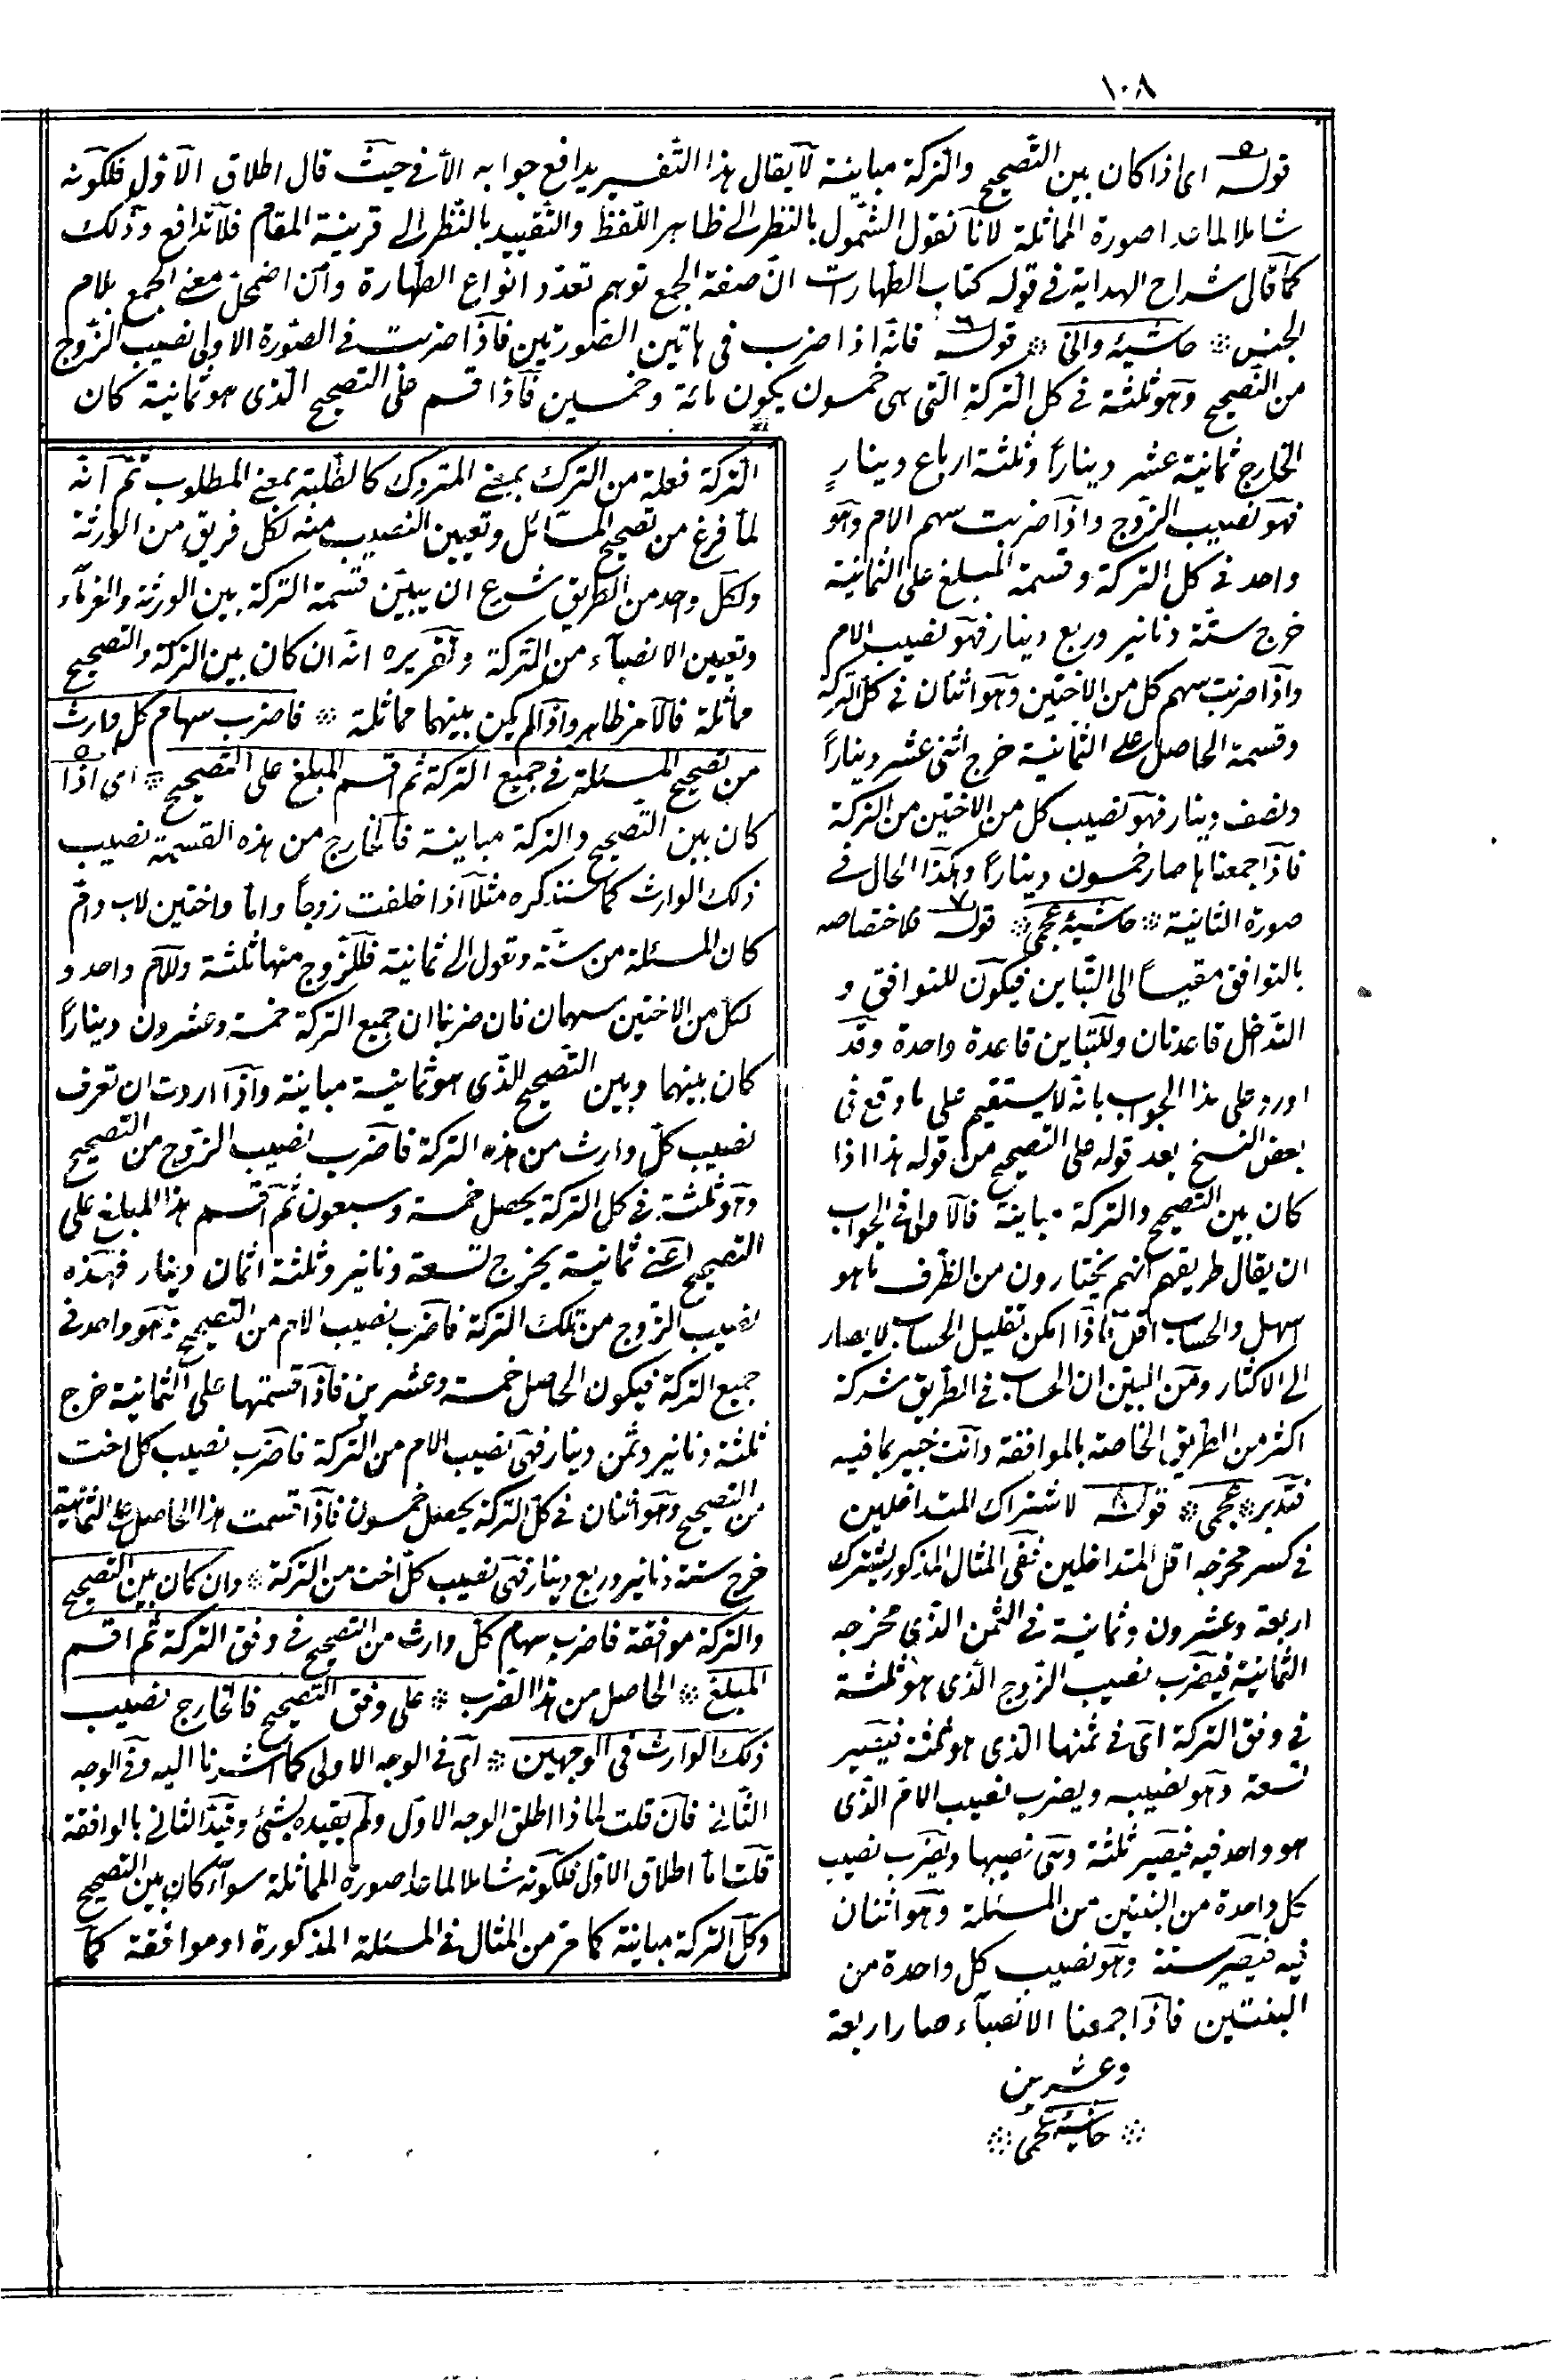 ١٠٨
قوله اى اذا كان بين التصحيح والتركة مباينة لا يقال هذا التفسير يدافع جوابه الآتى حيث قال اطلاق الاول فلكونه
شاملا لما عدا صورة المماثلة لانا نقول الشمول بالنظر الى ظاهر اللفظ والتقييد بالنظر الى قرينة المقام فلا تدافع وذلك
كما قال شراح الهداية فى قوله كتاب الطهارات ان صفة الجمع توهم تعدد انواع الطهارة وان اضمحل معنى الجمع بلام
الجنس ۞ حاشيه والى ۞ قوله ٦ فانه اذا ضرب فى هاتين الصورتين فاذا ضربت فى الصورة الاولى نصيب الزوج
من التصحيح وهو ثلثة فى كل التركة التى هى خمسون يكون مائة وخمسين فاذا قسم على التصحيح الذى هو ثمانية كان
الخارج ثمانية عشر دينارا وثلثة ارباع دينار
فهو نصيب الزوج واذا ضربت سهم الام وهو
واحد فى كل التركة وقسمة المبلغ على الثمانية
خرج ستة دنانير وربع دينار فهو نصيب الام
واذا ضربت سهم كل من الاختين وهو اثنان فى كل التركة
وقسمة الحاصل على الثمانية خرج اثنى عشر دينارا
ونصف دينار فهو نصيب كل من الاختين من التركة
فاذا جمعناها صار خمسون دينارا وهكذا الحال فى
صورة الثانية ۞ حاشيه عجمى ۞ قوله ٧ فلاختصاصه
بالتوافق مقيسا الى التباين فيكون للتوافق و
التداخل قاعدتان وللتباين قاعدة واحدة وقد
اورد على هذا الجواب بانه لا يستقيم على ما وقع فى
بعض النسخ بعد قوله على التصحيح من قوله هذا اذا
كان بين التصحيح والتركة مباينة فالاولى فى الجواب
ان يقال طريقهم انهم يختارون من الطرف ما هو
اسهل والحساب اقل فاذا امكن تقليل الحساب لا يصار
الى الاكثار ومن البين ان الحساب فى الطريق شركة
اكثر من الطريق الخاصة بالموافقة وانت خبير بما فيه
فتدبر ۞ عجمى ۞ قوله ٨ لاشتراك المتداخلين
فى كسر مخرجه اقل المتداخلين ففى المثال المذكور يشترك
اربعة وعشرون وثمانية فى الثمن الذى مخرجه
الثمانية فيضرب نصيب الزوج الذى هو ثلثة
فى وفق التركة اى فى ثمنها الذى هو ثلثة فيصير
تسعة وهو نصيبه ويضرب نصيب الام الذى
هو واحد فيه فيصير ثلثة وهى نصيبها ويضرب نصيب
كل واحدة من البنتين من المسئلة وهو اثنان
فيه فيصير ستة وهو نصيب كل واحدة من
البنتين فاذا جمعنا الانصباء صار اربعة
وعشرين
۞ حاشيه عجمى ۞
التركة فعلة من الترك بمعنى المتروك كالطلبة بمعنى المطلوب ثم انه
لما فرغ من تصحيح المسائل وتعيين النصيب منه لكل فريق من الورثة
ولكل واحد من الفريق شرع ان يبين قسمة التركة بين الورثة والغرماء
وتعيين الانصباء من التركة وتقريره انه ان كان بين التركة والتصحيح
مماثلة فالامر ظاهر واذا لم يكن بينهما مماثلة ۞ فاضرب سهام كل وارث
من تصحيح المسئلة فى جميع التركة ثم اقسم المبلغ على التصحيح ۞ اى اذا
كان بين التصحيح والتركة مباينة فالخارج من هذه القسمة نصيب
ذلك الوارث كما سنذكره مثلا اذا خلفت زوجا واما واختين لاب وام
كان المسئلة من ستة وتعول الى ثمانية فللزوج منها ثلثة وللام واحد و
لكل من الاختين سهمان فان ضربنا ان جميع التركة خمسة وعشرون دينارا
كان بينهما وبين التصحيح الذى هو ثمانية مباينة واذا اردت ان تعرف
نصيب كل وارث من هذه التركة فاضرب نصيب الزوج من التصحيح
وهو ثلثة فى كل التركة يحصل خمسة وسبعون ثم اقسم هذا المبلغ على
التصحيح اعنى ثمانية يخرج تسعة دنانير وثلثة اثمان دينار فهذه
نصيب الزوج من تلك التركة فاضرب نصيب الام من التصحيح وهو واحد فى
جميع التركة فيكون الحاصل خمسة وعشرين فاذا قسمتها على الثمانية خرج
ثلثة دنانير وثمن دينار فهى نصيب الام من التركة فاضرب نصيب كل اخت
من التصحيح وهو اثنان فى كل التركة يحصل خمسون فاذا قسمت هذا الحاصل على الثمانية
خرج ستة دنانير وربع دينار فهى نصيب كل اخت من التركة ۞ وان كان بين التصحيح
والتركة موافقة فاضرب سهام كل وارث من التصحيح فى وفق التركة ثم اقسم
المبلغ ۞ الحاصل من هذا الضرب ۞ على وفق التصحيح فالخارج نصيب
ذلك الوارث فى الوجهين ۞ اى فى الوجه الاولى كما اشرنا اليه وفى الوجه
الثانى فان قلت لماذا اطلق الوجه الاول ولم يقيده بشئ وقيد الثانى بالموافقة
قلت اما اطلاق الاول فلكونه شاملا لما عدا صورة المماثلة سواء كان بين التصحيح
وكل التركة مباينة كما مر من المثال فى المسئلة المذكورة او موافقة كما